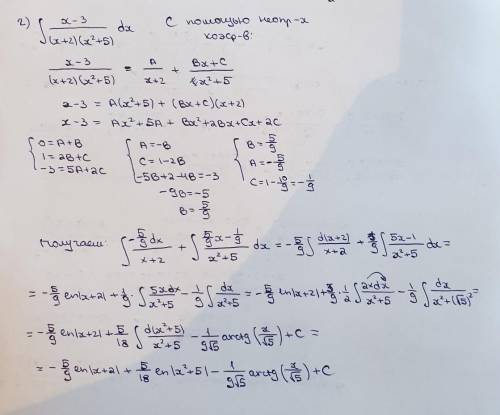 2) ∫ (x-3)/((x+2)(x²+5)) dx С помощью неопр-х
коэф-в:
(x-3)/((x+2)(x²+5)) = A/(x+2) + (Bx+C)/(x²+5)
x-3 = A(x²+5) + (Bx+C)(x+2)
x-3 = Ax²+5A+Bx²+2Bx+Cx+2C
{ 0=A+B { A=-B { B=5/9
{ 1=2B+C { C=1-2B { A=-5/9
{ -3=5A+2C { -5B+2-4B=-3 { C=1-10/9=-1/9
-9B=-5
B=5/9
Получаем: ∫ (-5/9 dx)/(x+2) + ∫ (5/9 x - 1/9)/(x²+5) dx = -5/9 ∫ d(x+2)/(x+2) + 1/9 ∫ (5x-1)/(x²+5) dx =
= -5/9 ln|x+2| + 1/9 · ∫ 5xdx/(x²+5) - 1/9 ∫ dx/(x²+5) = -5/9 ln|x+2| + 5/9 · 1/2 ∫ 2xdx/(x²+5) - 1/9 ∫ dx/(x²+(√5)²) =
= -5/9 ln|x+2| + 5/18 ∫ d(x²+5)/(x²+5) - 1/(9√5) arctg(x/√5) + C =
= -5/9 ln|x+2| + 5/18 ln|x²+5| - 1/(9√5) arctg(x/√5) + C